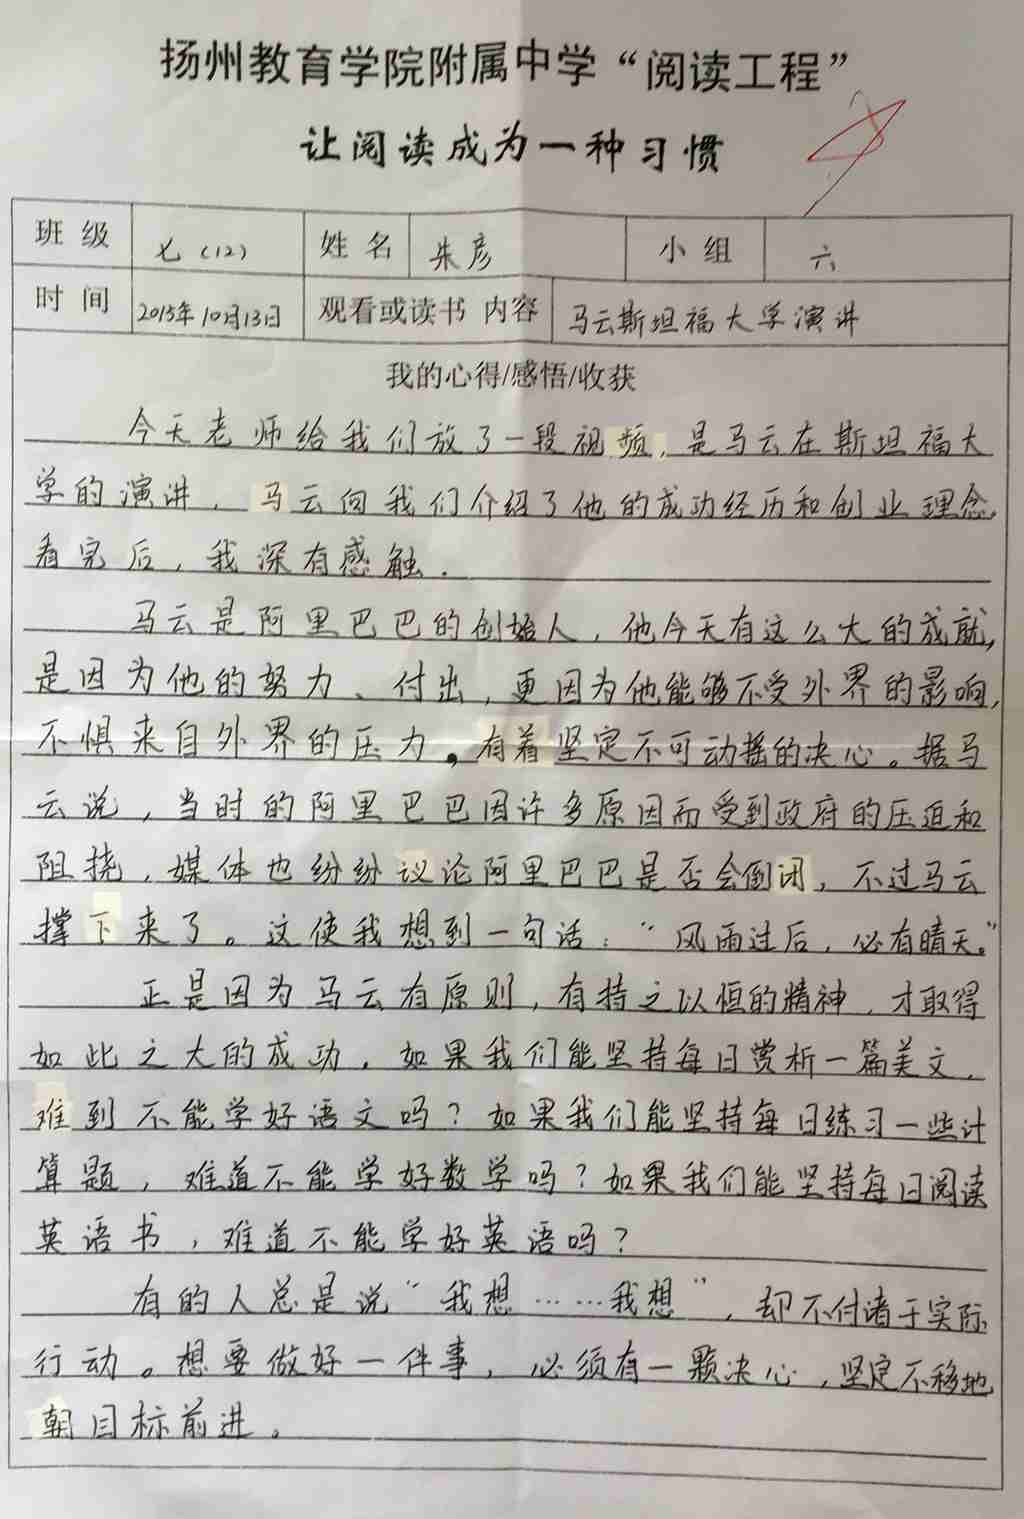 扬州教育学院附属中学“阅读工程”
让阅读成为一种习惯
班级 七(12) 姓名 朱彦 小组 六
时间 2015年10月13日 观看或读书内容 马云斯坦福大学演讲
我的心得/感悟/收获
今天老师给我们放了一段视频,是马云在斯坦福大
学的演讲,马云向我们介绍了他的成功经历和创业理念,
看完后,我深有感触.
马云是阿里巴巴的创始人,他今天有这么大的成就,
是因为他的努力、付出,更因为他能够不受外界的影响,
不惧来自外界的压力。有着坚定不可动摇的决心。据马
云说,当时的阿里巴巴因许多原因而受到政府的压迫和
阻挠,媒体也纷纷议论阿里巴巴是否会倒闭,不过马云
撑下来了。这使我想到一句话:“风雨过后,必有晴天。”
正是因为马云有原则,有持之以恒的精神,才取得
如此之大的成功.如果我们能坚持每日赏析一篇美文,
难到不能学好语文吗?如果我们能坚持每日练习一些计
算题,难道不能学好数学吗?如果我们能坚持每日阅读
英语书,难道不能学好英语吗?
有的人总是说“我想……我想”,却不付诸于实际
行动。想要做好一件事,必须有一颗决心,坚定不移地
朝目标前进。